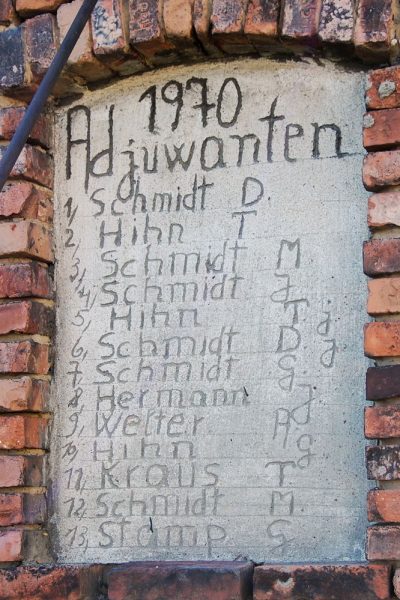 1970
Adjuwanten
1, Schmidt D.
2, Hihn T
3, Schmidt M.
4, Schmidt J.
5, Hihn T j
6, Schmidt D. j
7, Schmidt G.
8, Hermann J
9, Welter A
10, Hihn G
11, Kraus T
12, Schmidt M.
13, Stamp G